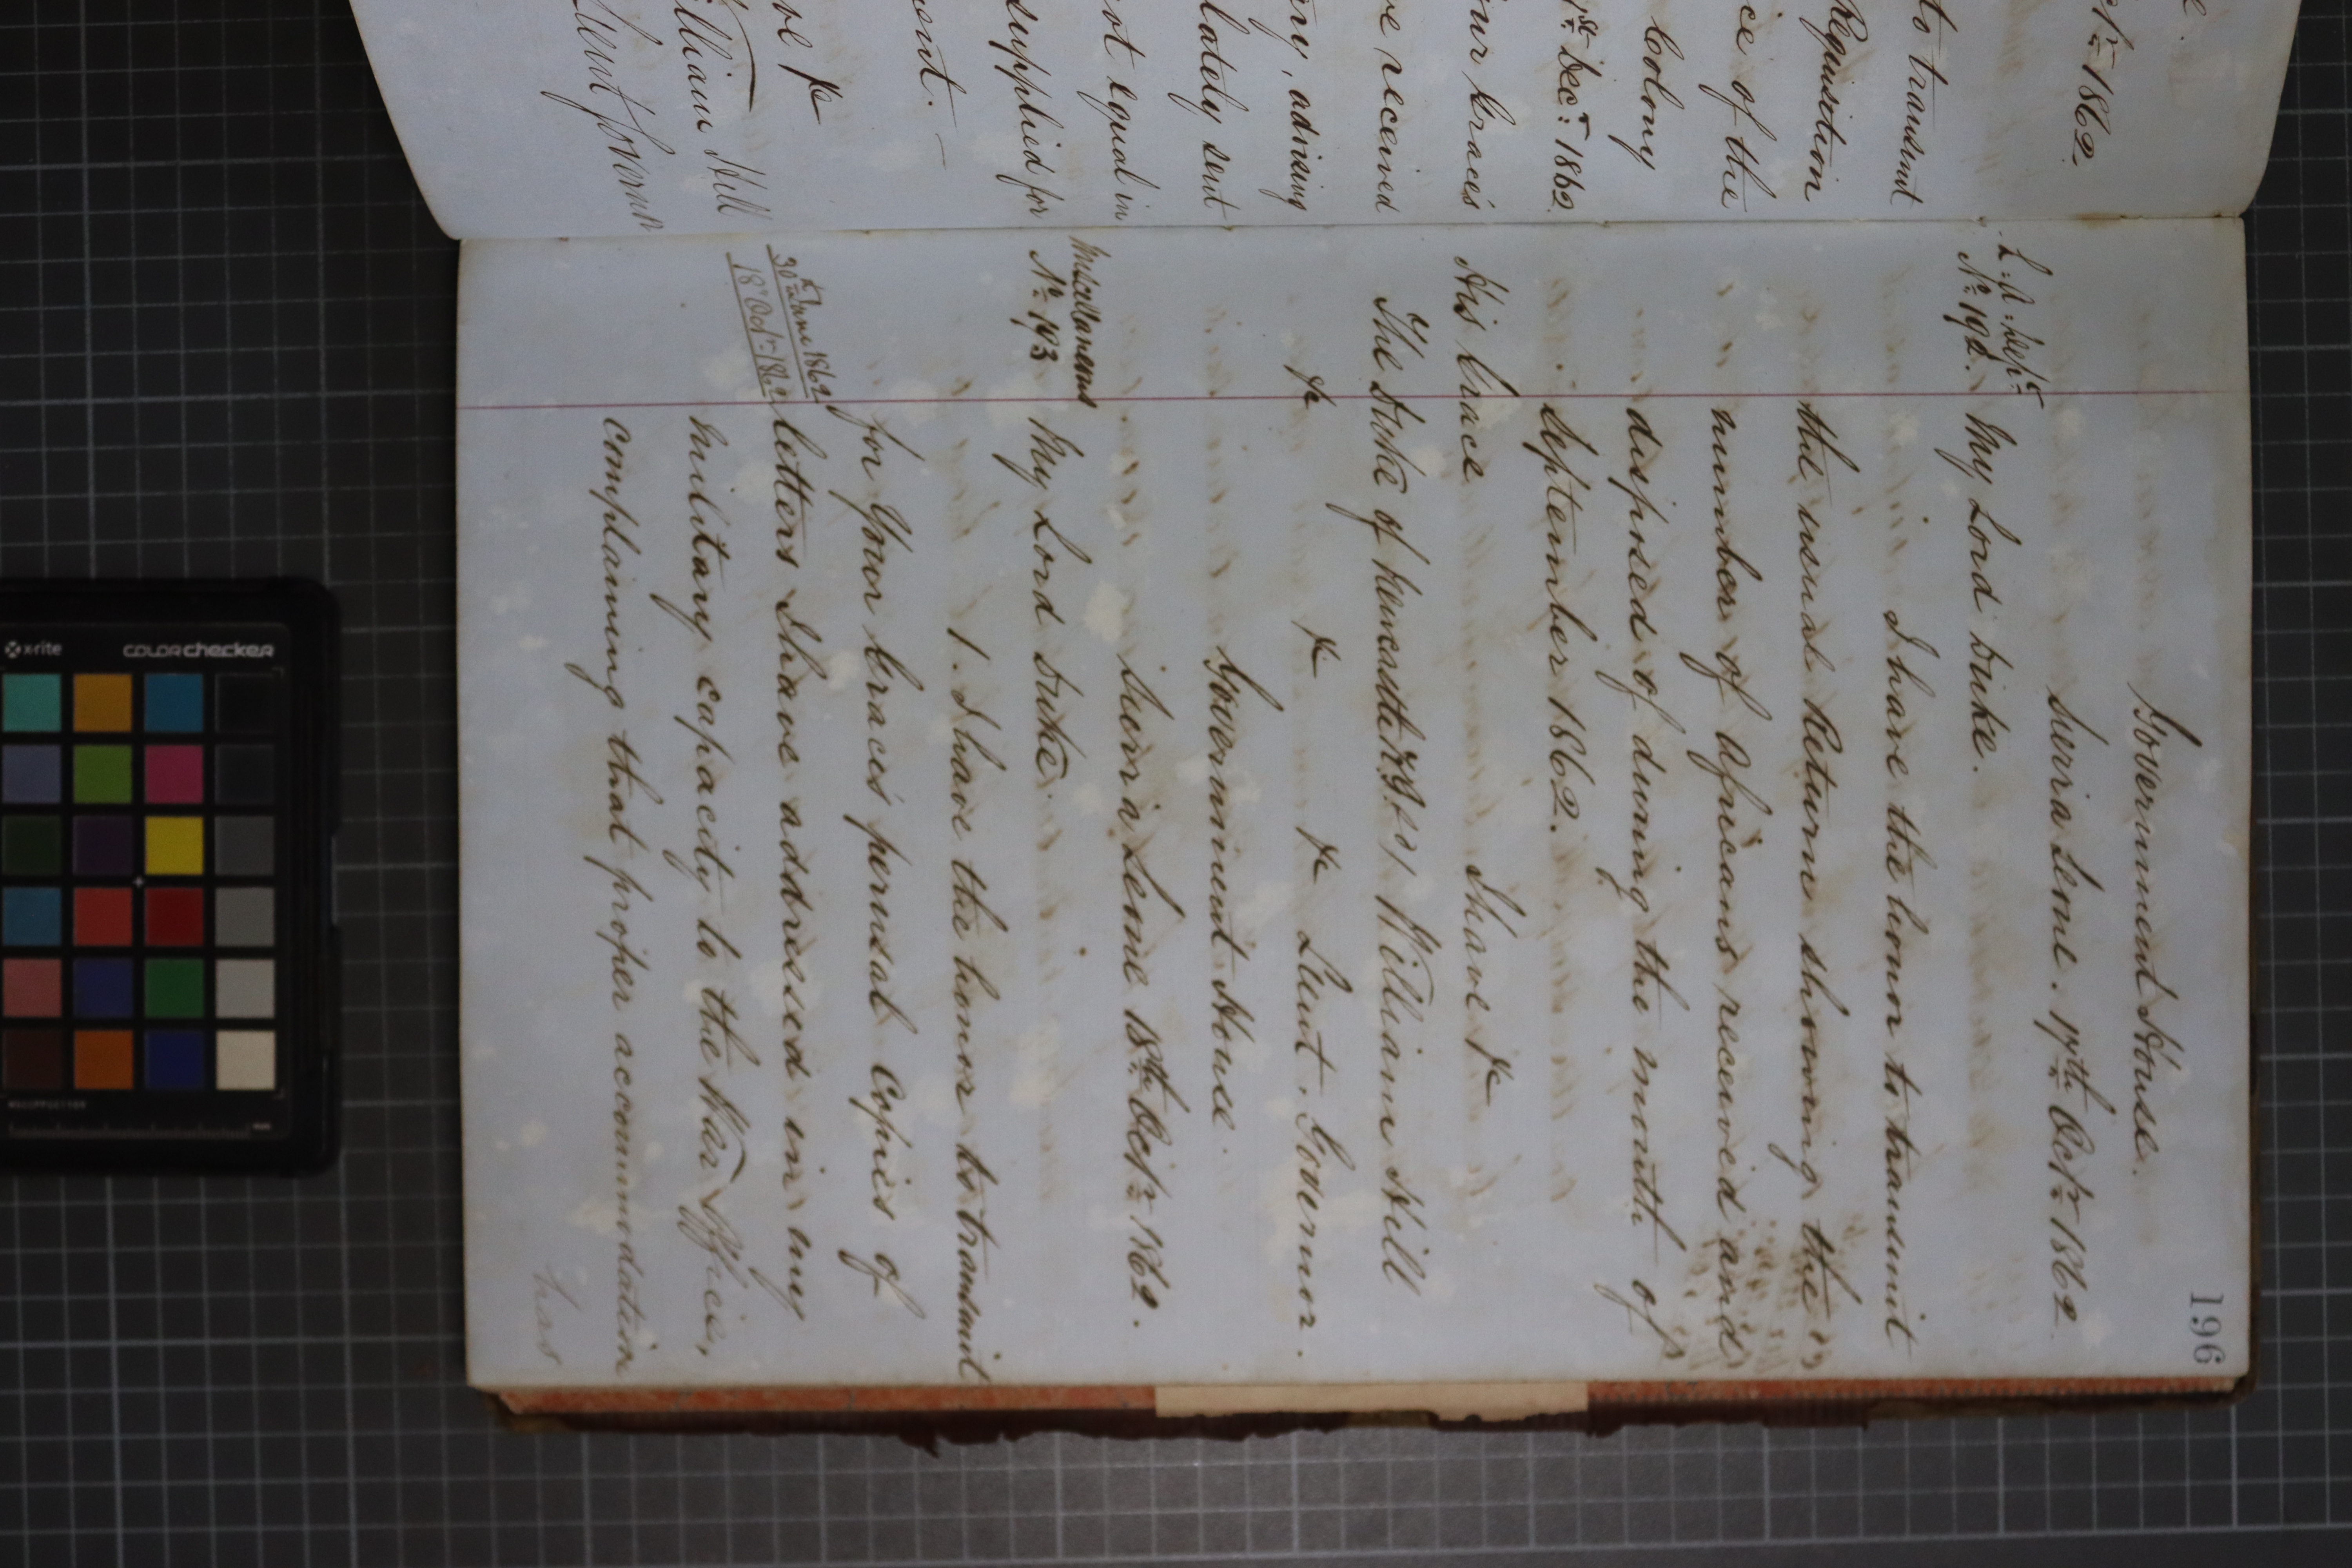 ptr. 1862.
to transmit
Requisition
ice of the
Colony
st Decr. 1862.
our Grace's
ve received
ny, advising
lately sent
not equal in
supplied for
ment.
ve &c
William Hill
Lieut Governor
196
Government House.
Sierra Leone. 17th Octr. 1862.
L: A: Dept.
No. 192. My Lord Duke.
I have the honor to transmit
the usual Return showing the
number of Africans received and
disposed of during the month of
September 1862.
His Grace I have &c
The Duke of Newcastle William Hill
&c &c &c Lieut. Governor.
Government House.
Sierra Leone 18th Octr. 1862.
Miscellaneous
No. 193 My Lord Duke.
1. I have the honor to transmit
for Your Grace's perusal Copies of
30th June 1862
18th Octr. 1862
letters I have addressed in my
military capacity to the War Office,
complaining that proper accommodation
has
x-rite colorchecker